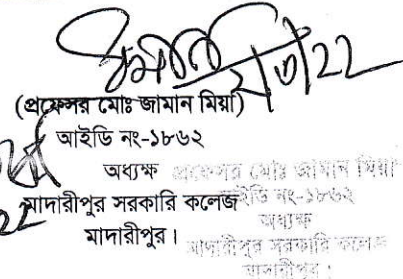 ২১/৩/22
(প্রফেসর মোঃ জামান মিয়া)
আইডি নং-১৮৬২
অধ্যক্ষ
মাদারীপুর সরকারি কলেজ
মাদারীপুর।
প্রফেসর মোঃ জামান মিয়া
আইডি নং-১৮৬২
অধ্যক্ষ
মাদারীপুর সরকারি কলেজ
মাদারীপুর।